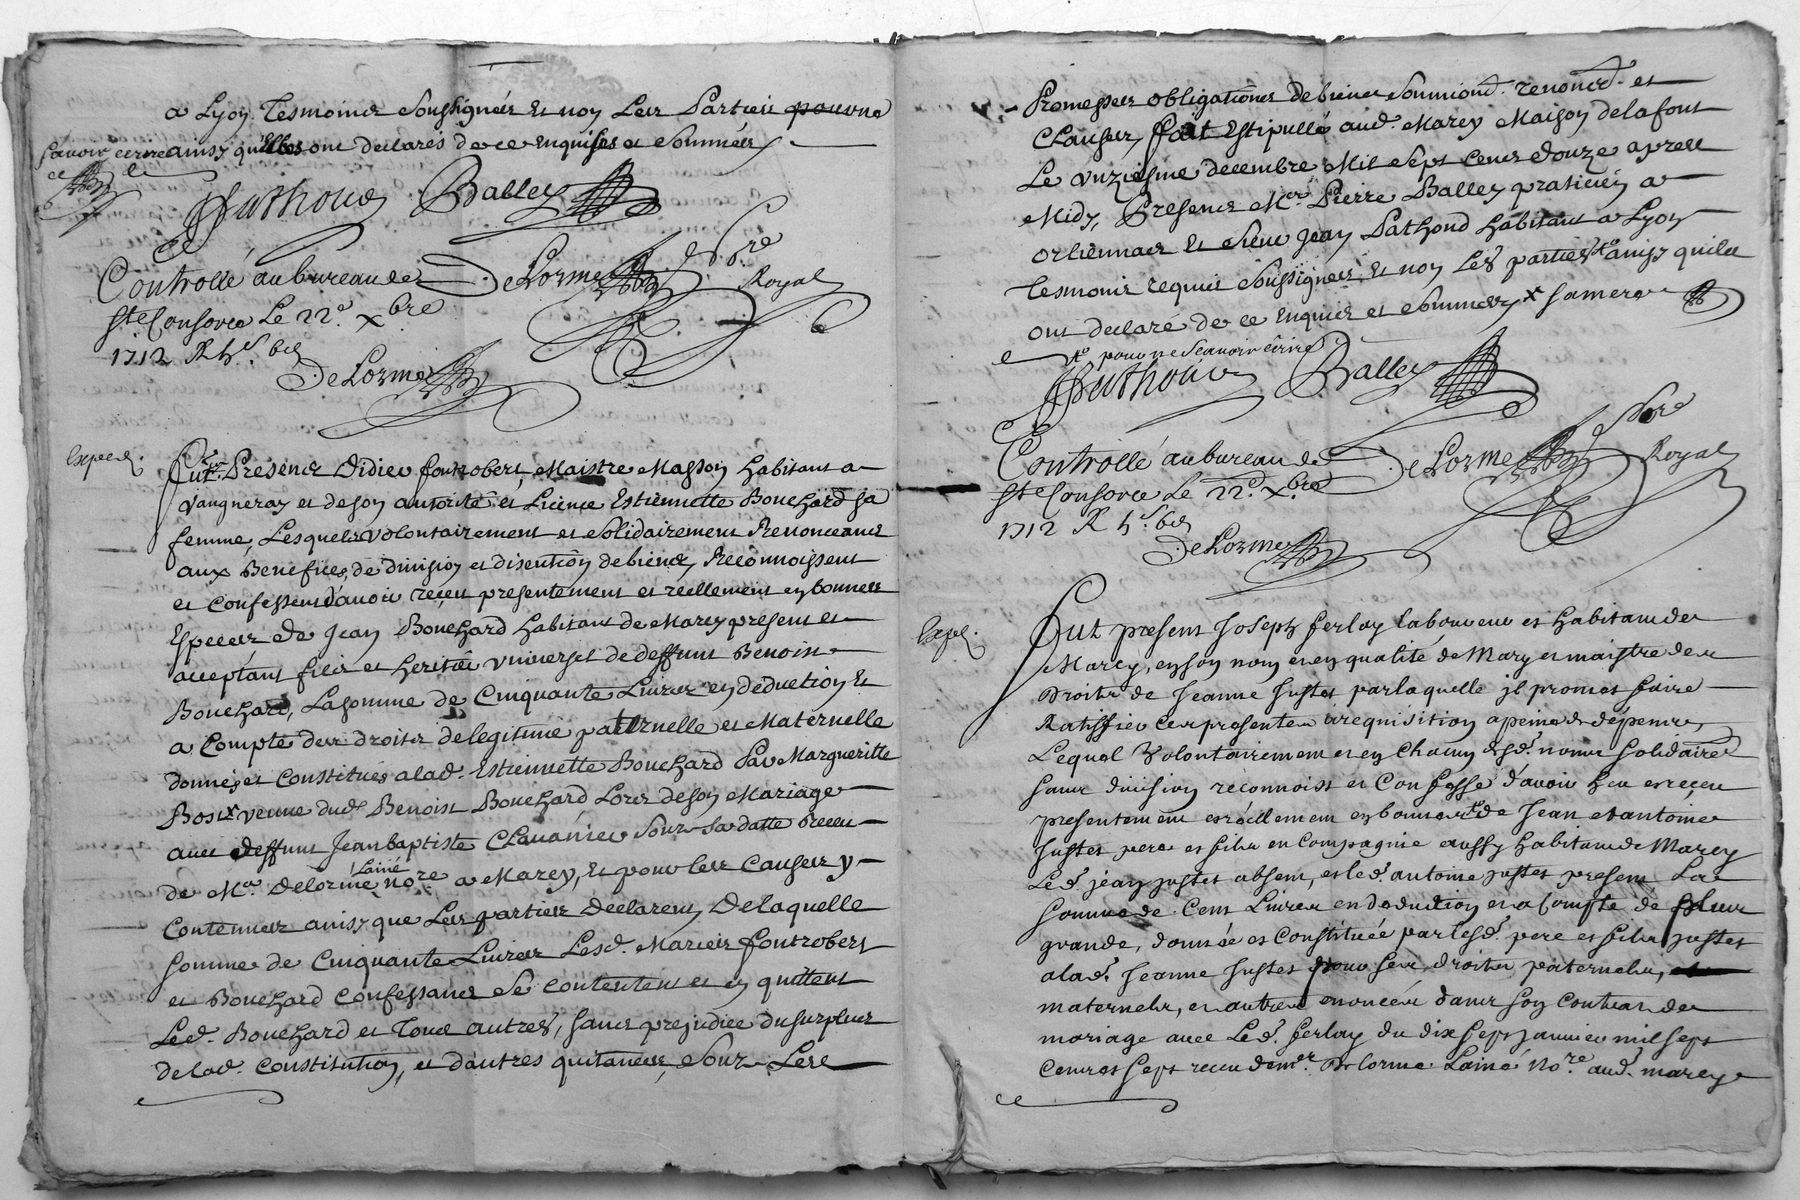 a Lyon Tesmoins Soussignés Et non Les Parties pour ne
savoir ecrire ainsy qu'Elles ont declarés de ce Enquises et Sommées
JPathoud Balley
Controllé au bureau de
DeLorme No.re Royal
Ste Consorce Le 22e xbre
1712 R h s 6d
DeLorme
Exped.
Fut Presens Didier fontrobert, Maistre Masson habitant a
Vaugneray et de son autorité et Licence Estiennette Bouchard sa
femme, Lesquels volontairement et solidairement Renonceans
aux Benefices de division et discution de biens, Reconnoissent
et confessent d'avoir receu presentement et reellement en bonnes
Especes de Jean Bouchard habitant de Marcy present et
acceptant fils et heritier universel de deffunt Benoist
Bouchard, La somme de Cinquante Livres en deduction Et
a compte des droits de legitime paternelle et Maternelle
donnés et constitués a lad. Estiennette Bouchard Par Margueritte
veuve dud. Benoist Bouchard Lors de son Mariage
avec deffunt Jean baptiste Clavanier Sous Sa datte Receu
de Me. Delorme Lainé no.re a Marcy, Et pour les Causes y
Contenues ainsy que Les parties declarent, De laquelle
somme de Cinquante Livres Lesd. Mariés fontrobert
et Bouchard confessans Se contentent et en quittent
Led. Bouchard et Tous autres, sans prejudice du surplus
de lad. constitution, et d'autres quitances, Sous Les
Promesses obligations de biens Soumions. renons. et
Clauses, fait Et stipullé aud. Marcy Maison de la font
Le unziesme decembre Mil Sept Cens douze apres
Midy, Presens Mre Pierre Balley praticien a
et Sieur Jean Pathoud habitant a Lyon
tesmoins requis Soussignés, Et non Les parties ainsy qu'ils
ont declaré de ce Enquis et Sommes
pour ne Scavoir écrire
JPathoud Balley
Controllé au bureau de
DeLorme No.re Royal
Ste Consorce Le 22e xbre
1712 R h s 6d
DeLorme
Exped.
Fut present Joseph ferlay laboureur et habitant de
Marcy, en son nom et en qualité de Mary et maistre des
Droits de Jeanne Justet par laquelle jl promet faire
Ratiffier Ces presentes a requisition a peine de dépens,
Lequel Volontairement et en Chacun desd. noms solidaires
sans division reconnoist et Confesse d'avoir heu et receu
presentement et reellement en bonnes de Jean et antoine
Justet pere et fils en Compagnie aussy habitans de Marcy
Led. jean justet absent, et led. antoine justet present La
somme de Cent Livres en deduction et a Compte de plus
grande, donnée et Constituée par lesd. pere et fils justet
a lad. Jeanne Justet pour ses droits paternels,
maternels, et autres enoncés dans son Contrat de
mariage avec Led. ferlay du dix sept janvier mil sept
Cens et sept receu de me. Delorme Lainé No.re aud. marcy